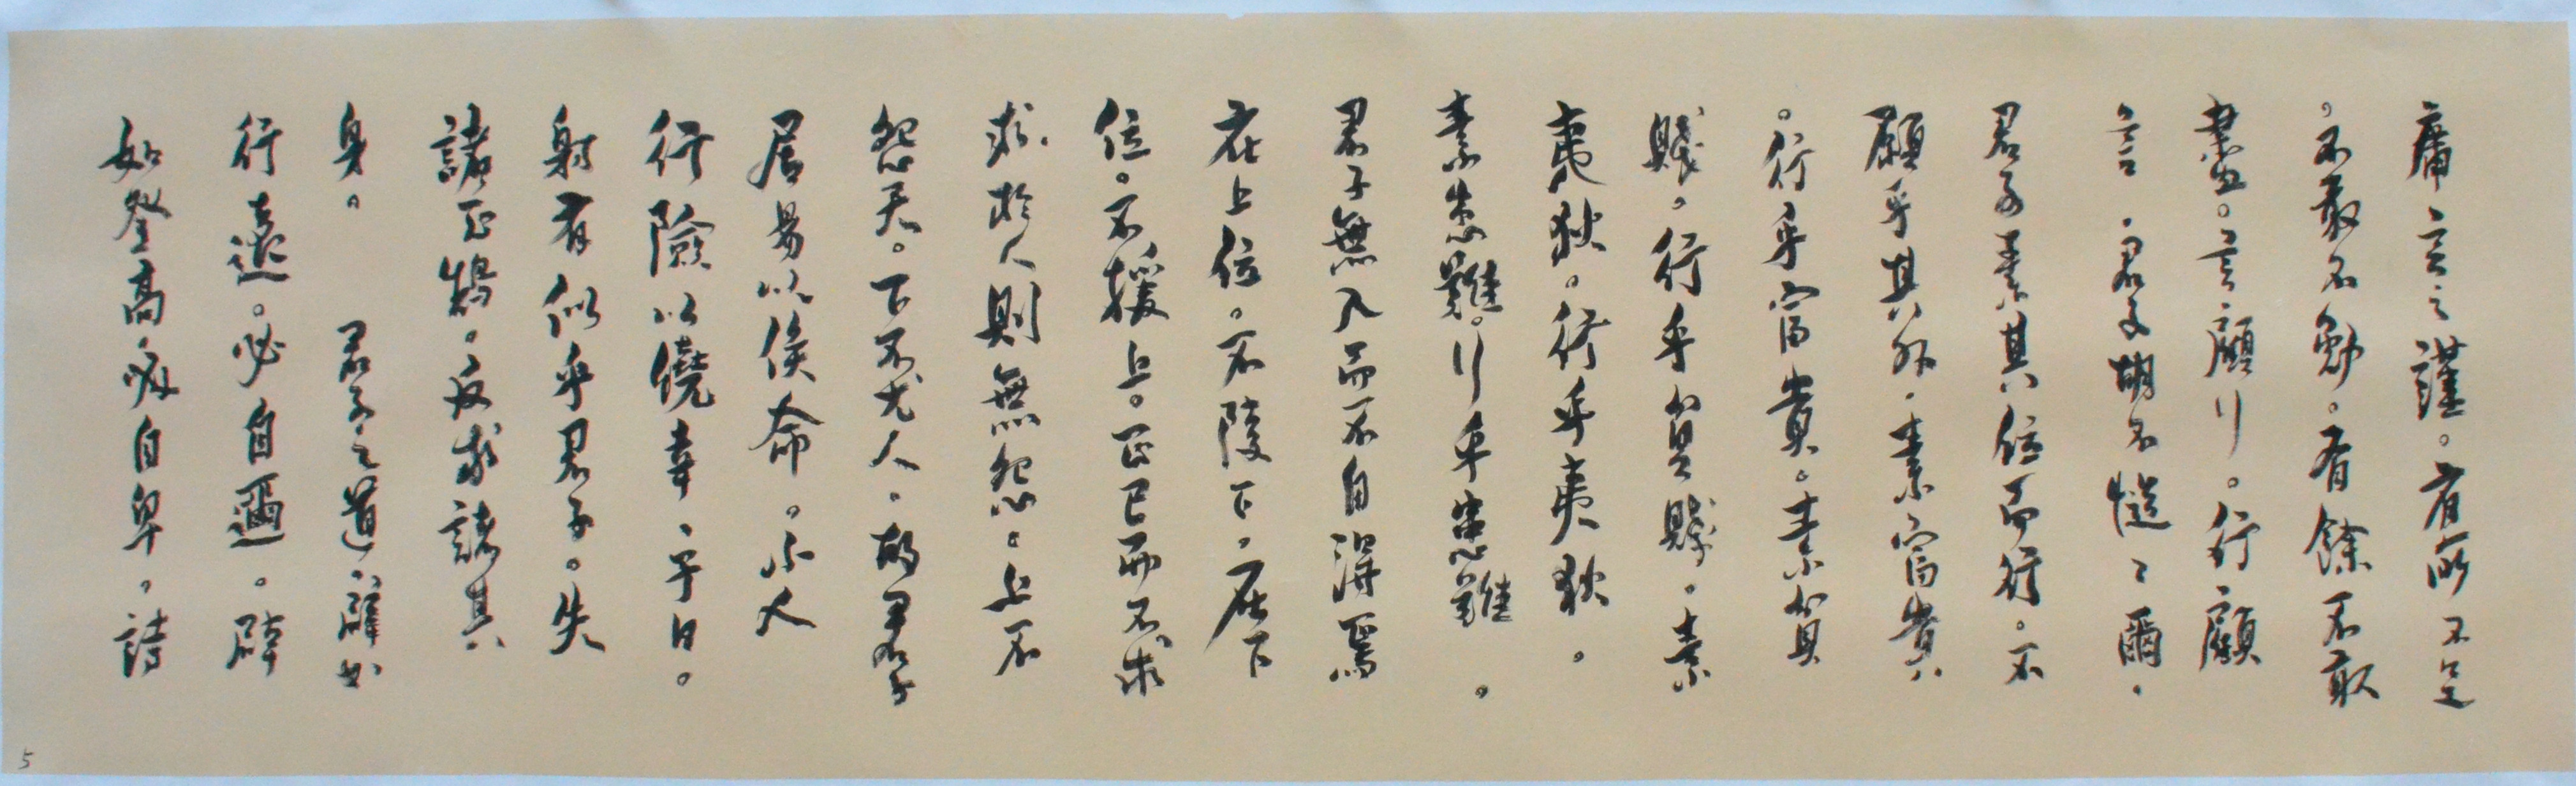 庸言之謹。有所不足
。不敢不勉。有餘不敢
盡。言顧行。行顧
言。君子胡不慥々爾。
君子素其位而行。不
願乎其外。素富貴
。行乎富貴。素貧
賤。行乎貧賤。素
夷狄。行乎夷狄。
素患難。行乎患難。
君子無入而不自得焉
在上位。不陵下。在下
位。不援上。正己而不求
求於人則無怨。上不
怨天。下不尤人。故君子
居易以俟命。小人
行險以僥幸。子曰。
射有似乎君子。失
諸正鵠。反求諸其
身。 君子之道。辟如
行遠。必自邇。辟
如登高。必自卑。詩
5